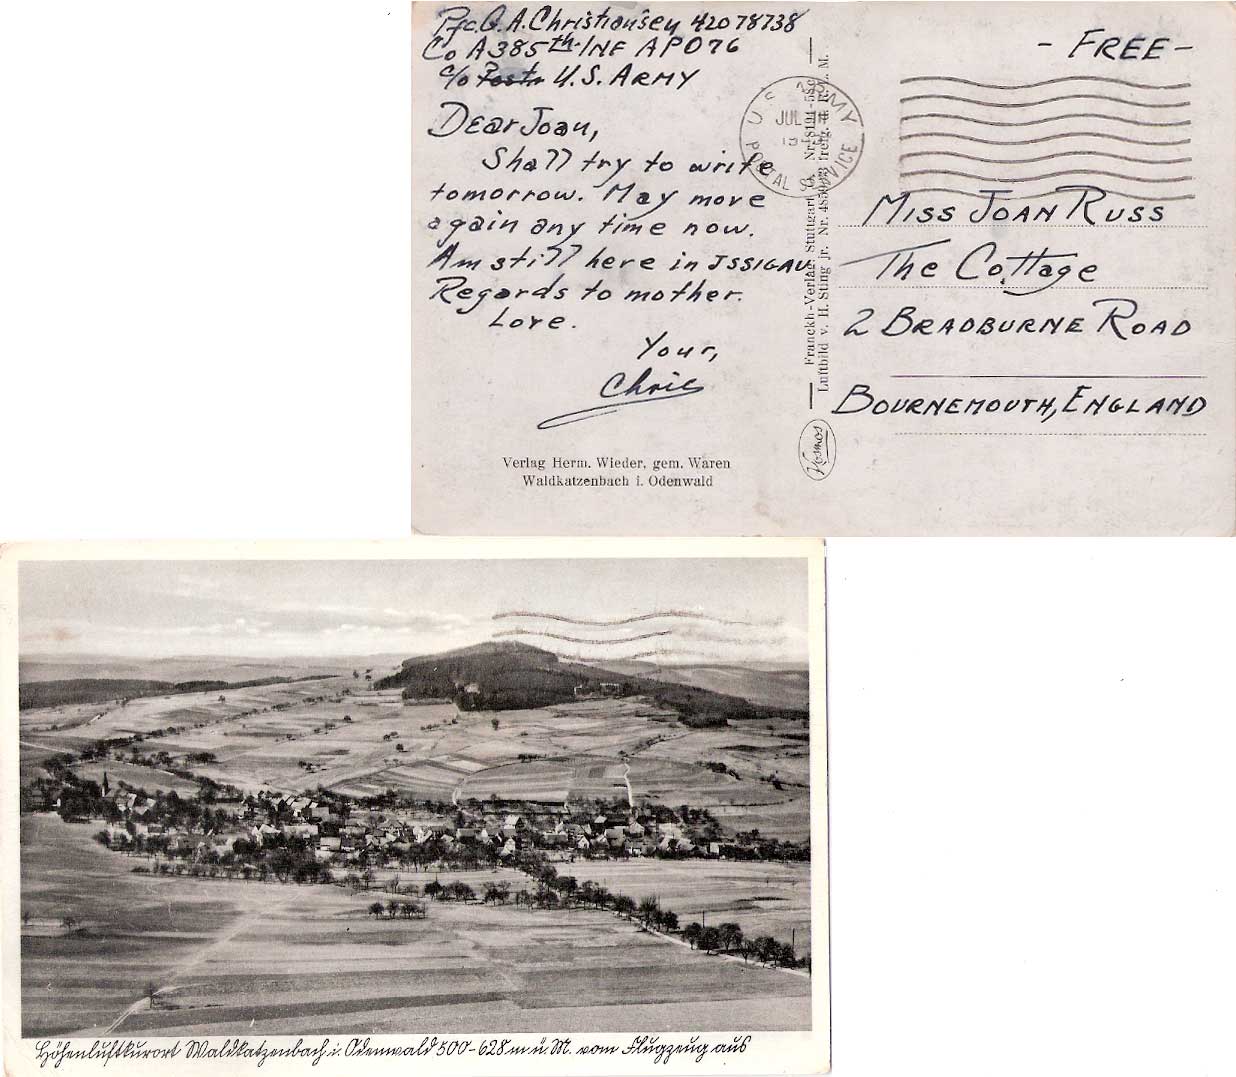 Pfc. G. A. Christiansen 42078738
Co A 385th INF APO 76
c/o Postm U.S. ARMY
Dear Joan,
Shall try to write
tomorrow. May move
again any time now.
Am still here in ISSIGAU
Regards to mother.
Love.
Your,
Chric
Verlag Herm. Wieder, gem. Waren
Waldkatzenbach i. Odenwald
U.S. ARMY
JUL
POSTAL SERVICE
Franckh-Verlag, Stuttgart
Luftbild v. H. Sting jr. Nr.
Kosmos
- FREE -
MISS JOAN RUSS
The Cottage
2 BRADBURNE ROAD
BOURNEMOUTH, ENGLAND
Höhenluftkurort Waldkatzenbach i. Odenwald 500-628 m ü. M. vom Flugzeug aus